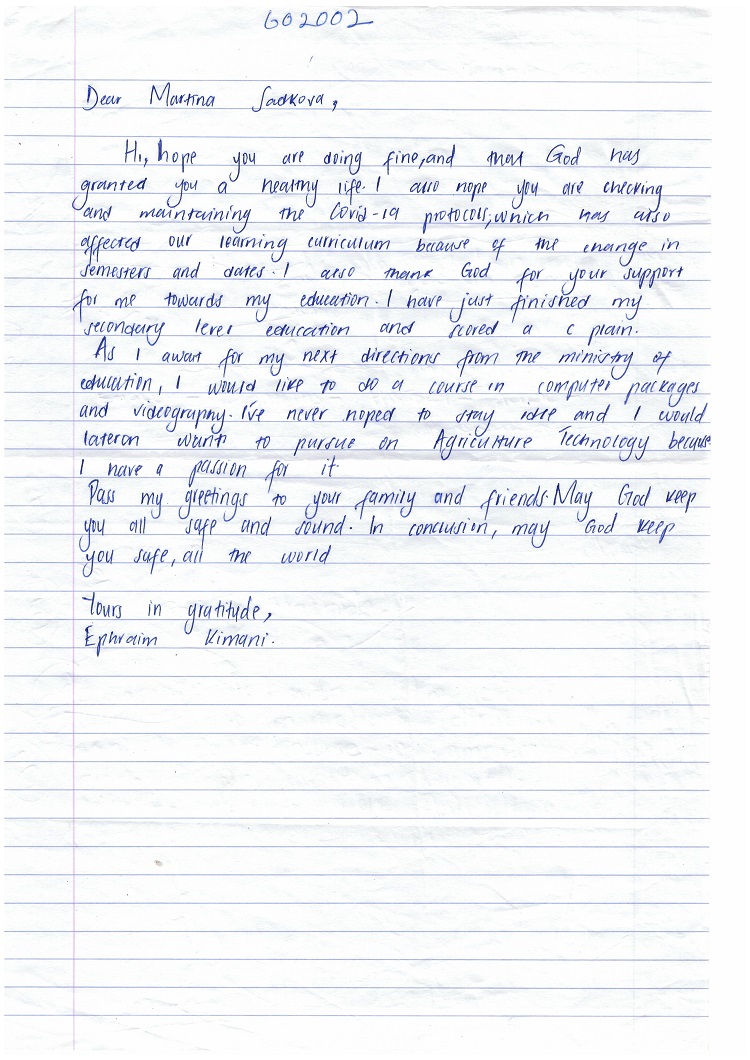 602002
Dear Martina Sadkova,
Hi, hope you are doing fine, and that God has
granted you a healthy life. I also hope you are checking
and maintaining the Covid-19 protocols, which has also
affected our learning curriculum because of the change in
semesters and dates. I also thank God for your support
for me towards my education. I have just finished my
secondary level education and scored a C plain.
As I await for my next directions from the ministry of
education, I would like to do a course in computer packages
and videography. I've never hoped to stay idle and I would
lateron want to pursue on Agriculture Technology because
I have a passion for it.
Pass my greetings to your family and friends. May God keep
you all safe and sound. In conclusion, may God keep
you safe, all the world
Yours in gratitude,
Ephraim Kimani.